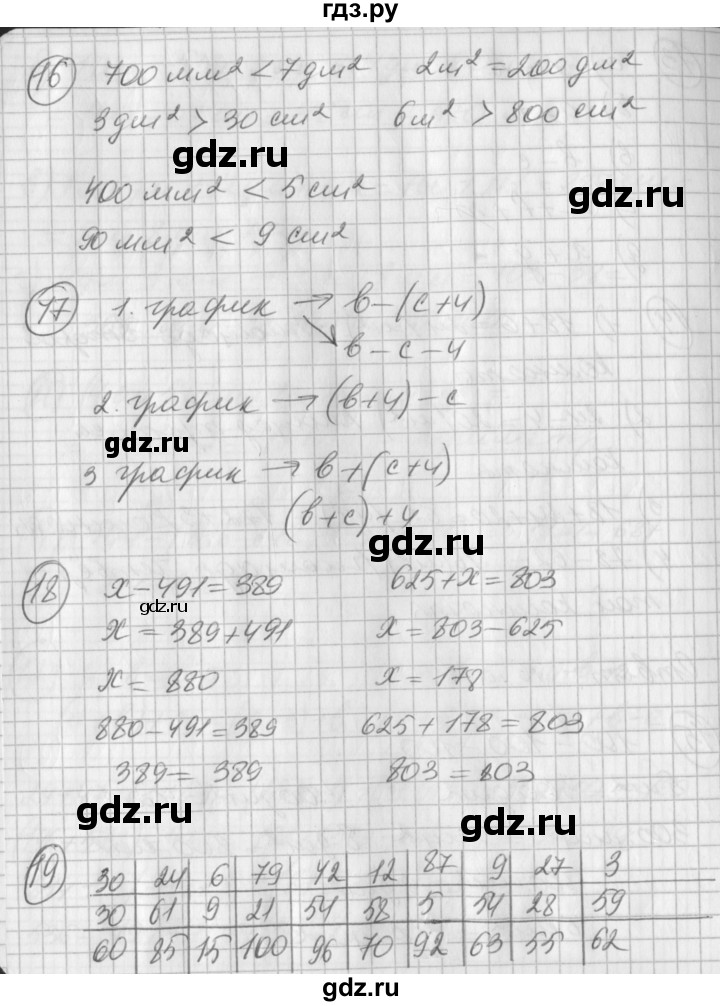 гдз.ру
16 700 мм² < 7 дм² 2 м² = 200 дм²
3 дм² > 30 см² 6 м² > 800 см²
gdz.ru
400 мм² < 5 см²
gdz.ru
90 мм² < 9 см²
17 1. график → в – (с + 4)
↘ в – с – 4
2. график → (в + 4) – с
gdz.ru
3 график → в + (с + 4)
(в + с) + 4
gdz.ru
18 х – 491 = 389 625 + х = 803
gdz.ru
х = 389 + 491 х = 803 – 625
х = 880 х = 178
880 – 491 = 389 625 + 178 = 803
389 = 389 803 = 803
gdz.ru gdz.ru
19 30 24 6 79 42 12 87 9 27 3
30 61 9 21 54 58 5 54 28 59
60 85 15 100 96 70 92 63 55 62
gdz.ru gdz.ru